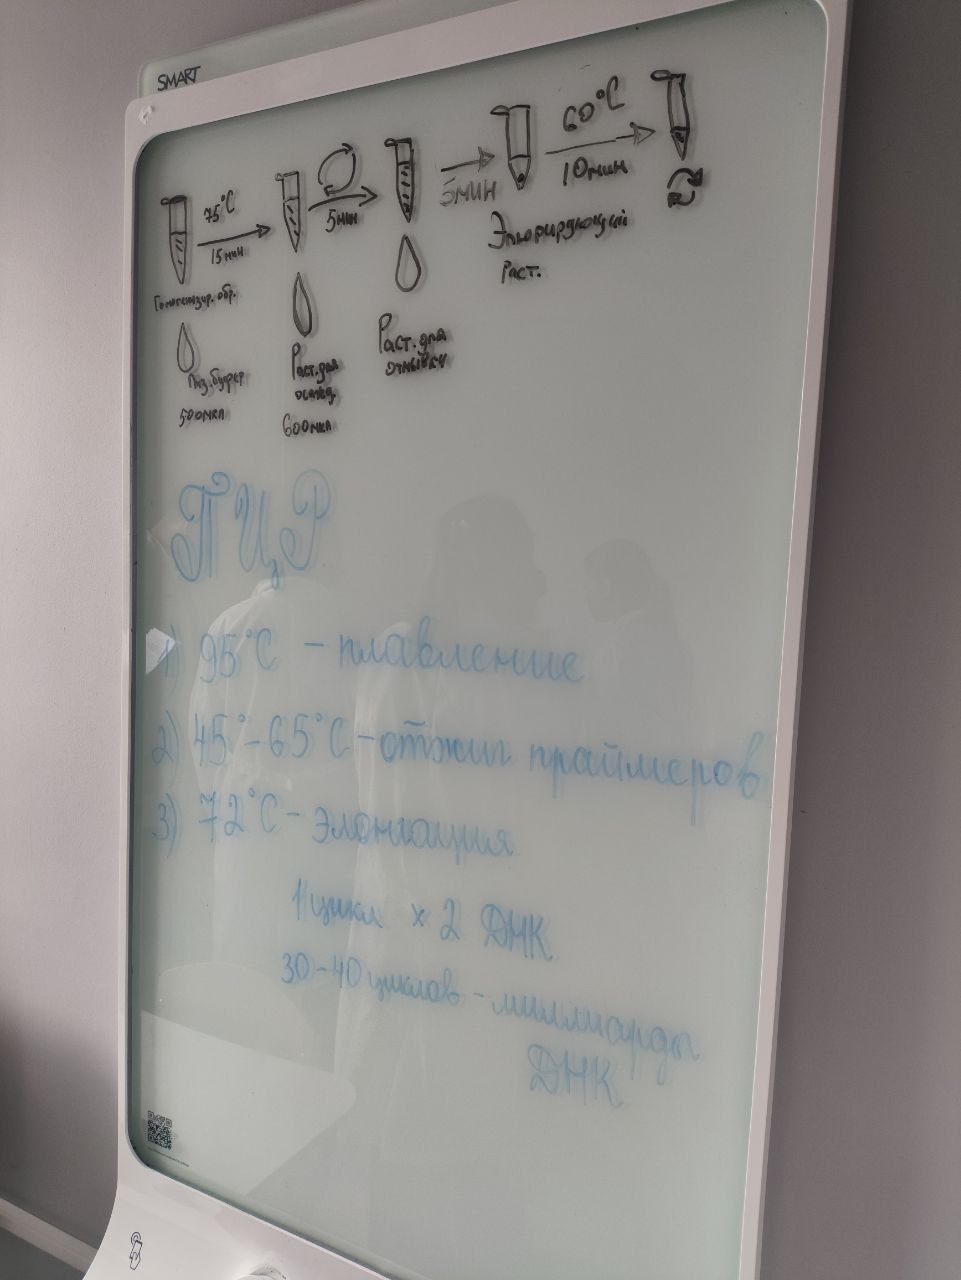 SMART
75°C
15 мин
5мин
5мин
60°C
10мин
Гомогенизир. обр.
Лиз.буфер
500мкл
Раст.для
осажд.
600мкл
Раст.для
отмывки
Элюирующий
Раст.
ПЦР
1) 95°C - плавление
2) 45°-65°C-отжиг праймеров
3) 72°C- Элонгация
1 цикл x 2 ДНК
30-40 циклов -миллиарды
ДНК